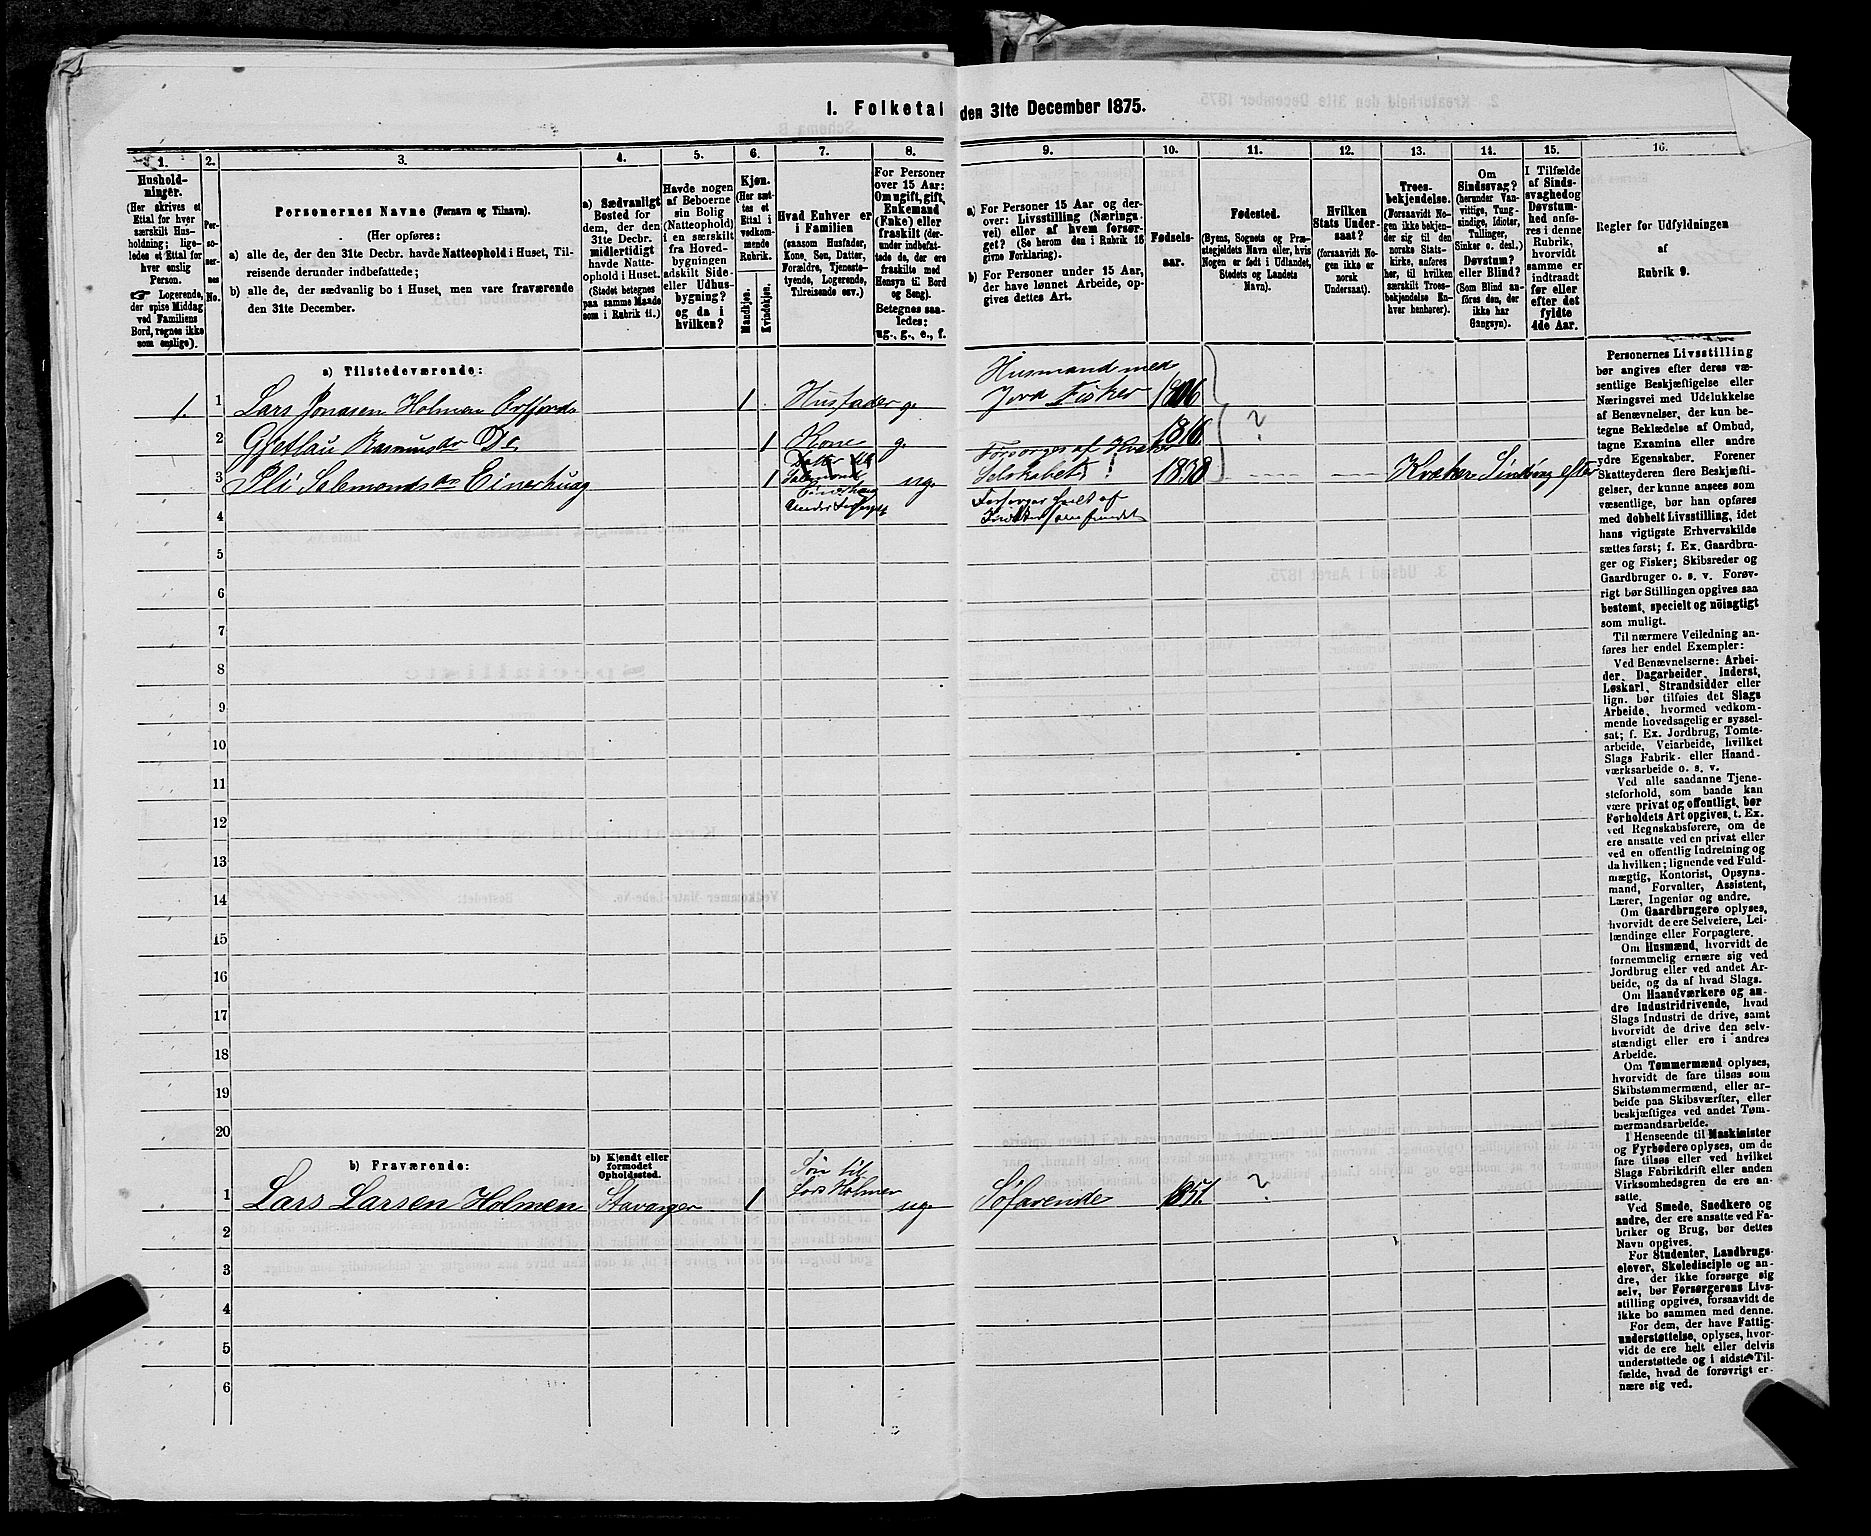 1. Folketal den 31te December 1875.
1.
2.
3.
4.
5.
6.
7.
8.
9.
10.
11.
12.
13.
14.
15.
16.
Hushold-
ninger.
(Her skrives et
Ettal for hver
særskilt Hus-
holdning; lige-
ledes et Ettal for
hver enslig
Person.
☞ Logerende,
der spise Middag
ved Familiens
Bord, regnes ikke
som enslige).
Per-
so-
ner-
nes
No.
Personernes Navne (Fornavn og Tilnavn).
(Her opføres:
a) alle de, der den 31te Decbr. havde Natteophold i Huset, Til-
reisende derunder indbefattede;
b) alle de, der sædvanlig bo i Huset, men vare fraværende
den 31te December.
a) Sædvanligt
Bosted for
dem, der den
31te Decbr.
midlertidigt
havde Natte-
ophold i Huset.
(Stedet betegnes
paa samme Maade
som i Rubrik 11.)
Havde nogen
af Beboerne
sin Bolig
(Natteophold)
i en særskilt
fra Hoved-
bygningen
adskilt Side-
eller Udhus-
bygning?
og da i
hvilken?
Kjøn.
(Her sæt-
tes et
Ettal i
vedkom-
mende
Rubrik.
Mandkjøn.
Kvindekjøn.
Hvad Enhver er
i Familien
(saasom Husfader,
Kone, Søn, Datter,
Forældre, Tjeneste-
tyende, Logerende,
Tilreisende osv.)
For Personer
over 15 Aar:
Om ugift, gift,
Enkemand
(Enke) eller
fraskilt (der-
under indbefat-
tede de, der ere
fraskilte med
Hensyn til Bord
og Seng).
Betegnes saa-
ledes:
ug., g., e., f.
a) For Personer 15 Aar og der-
over: Livsstilling (Nærings-
vei) eller af hvem forsør-
get? (Se herom den i Rubrik 16
givne Forklaring).
b) For Personer under 15 Aar,
der have lønnet Arbeide, op-
gives dettes Art.
Fødsels-
aar.
Fødested.
(Byens, Sognets og Præ-
stegjeldets Navn eller, hvis
Nogen er født i Udlandet,
Stedets og Landets
Navn).
Hvilken
Stats Under-
saat?
(forsaavidt No-
gen ikke er
norsk
Undersaat).
Troes-
bekjendelse.
(Forsaavidt No-
gen ikke bekjen-
der sig til den
norske Stats-
kirke, anføres
her, til hvilken
særskilt Troes-
bekjendelse En-
hver henhører).
Om
Sindssvag?
(herunder Van-
vittige, Tung-
sindige, Idioter,
Tullinger,
Sinker o. desl.)
Døvstum?
eller Blind?
(Som Blind an-
føres den, der
ikke har
Gangsyn).
I Tilfælde
af Sinds-
svaghed og
Døvstum-
hed anfø-
res i denne
Rubrik,
hvorvidt
samme er
indtraadt
før eller
efter det
fyldte
4de Aar.
Regler før Udfyldningen
af
Rubrik 9.
a) Tilstedeværende:
1. 1 Lars Jonasen Holmen 1 Husfader g. Husmand med
Jord Fisker 1806
2 Rasmusdr Do 1 Kone g. 1816 ?
3 Salemonsdr Einerhaug 1 Datter til
Salemond
Einerhaug
ug. Forsørges af Kvæker
Selskabet! 1838 Kvæker efter
4
5
6
7
8
9
10
11
12
13
14
15
16
17
18
19
20
b) Fraværende:
b) Kjendt eller
formodet
Opholdssted.
1 Lars Larsen Holmen Stavanger 1 Søn til
Lars Holmen ug. Søfarende 1851 ?
2
3
4
5
6
Personernes Livsstilling
bør angives efter deres væ-
sentlige Beskjæftigelse eller
Næringsvei med Udelukkelse
af Benævnelser, der kun be-
tegne Beklædelse af Ombud,
tagne Examina eller andre
ydre Egenskaber. Forener
Skatteyderen flere Beskjæfti-
gelser, der kunne ansees som
væsentlige, bør han opføres
med dobbelt Livsstilling, idet
hans vigtigste Erhvervskilde
sættes først; f. Ex. Gaardbru-
ger og Fisker; Skibsreder og
Gaardbruger o. s. v. Forøv-
rigt bør Stillingen opgives saa
bestemt, specielt og nöiagtigt
som muligt.
Til nærmere Veiledning an-
føres her endel Exempler:
Ved Benævnelserne: Arbei-
der, Dagarbeider, Inderst,
Løskarl, Strandsidder eller
lign. bør tilføies det Slags
Arbeide, hvormed vedkom-
mende hovedsagelig er syssel-
sat; f. Ex. Jordbrug, Tomte-
arbeide, Veiarbeide, hvilket
Slags Fabrik- eller Haand-
værksarbeide o. s. v.
Ved alle saadanne Tjene-
steforhold, som baade kan
være privat og offentligt, bør
Forholdets Art opgives, t. Ex.
ved Regnskabsførere, om de
ere ansatte ved en privat eller
ved en offentlig Indretning og
da hvilken; lignende ved Fuld-
mægtig, Kontorist, Opsyns-
mand, Forvalter, Assistent,
Lærer, Ingeniør og andre.
Om Gaardbrugere oplyses,
hvorvidt de ere Selveiere, Lei-
lændinge eller Forpagtere.
Om Husmænd, hvorvidt de
fornemmelig ernære sig ved
Jordbrug eller ved andet Ar-
beide, og da af hvad Slags.
Om Haandværkere og an-
dre Industridrivende, hvad
Slags Industri de drive, samt
hvorvidt de drive den selv-
stændigt eller ere i andres
Arbeide.
Om Tømmermænd oplyses,
hvorvidt de fare tilsøs som
Skibstømmermænd, eller ar-
beide paa Skibsværfter, eller
beskjæftiges ved andet Tøm-
mermandsarbeide.
I Henseende til Maskinister
og Fyrbødere oplyses, om de
fare tilsøs eller ved hvilket
Slags Fabrikdrift eller anden
Virksomhedsgren de ere an-
satte.
Ved Smede, Snedkere og
andre, der ere ansatte ved Fa-
briker og Brug, bør dettes
Navn opgives.
For Studenter, Landbrugs-
elever, Skoledisciple og an-
dre, der ikke forsørge sig
selv, bør Forsørgerens Livs-
stilling opgives, forsaavidt de
ikke bo sammen med denne.
For dem, der have Fattig-
understøttelse, oplyses, hvor-
vidt de ere helt eller delvis
understøttede og i sidste Til-
fælde, hvad de forøvrigt er-
nære sig ved.